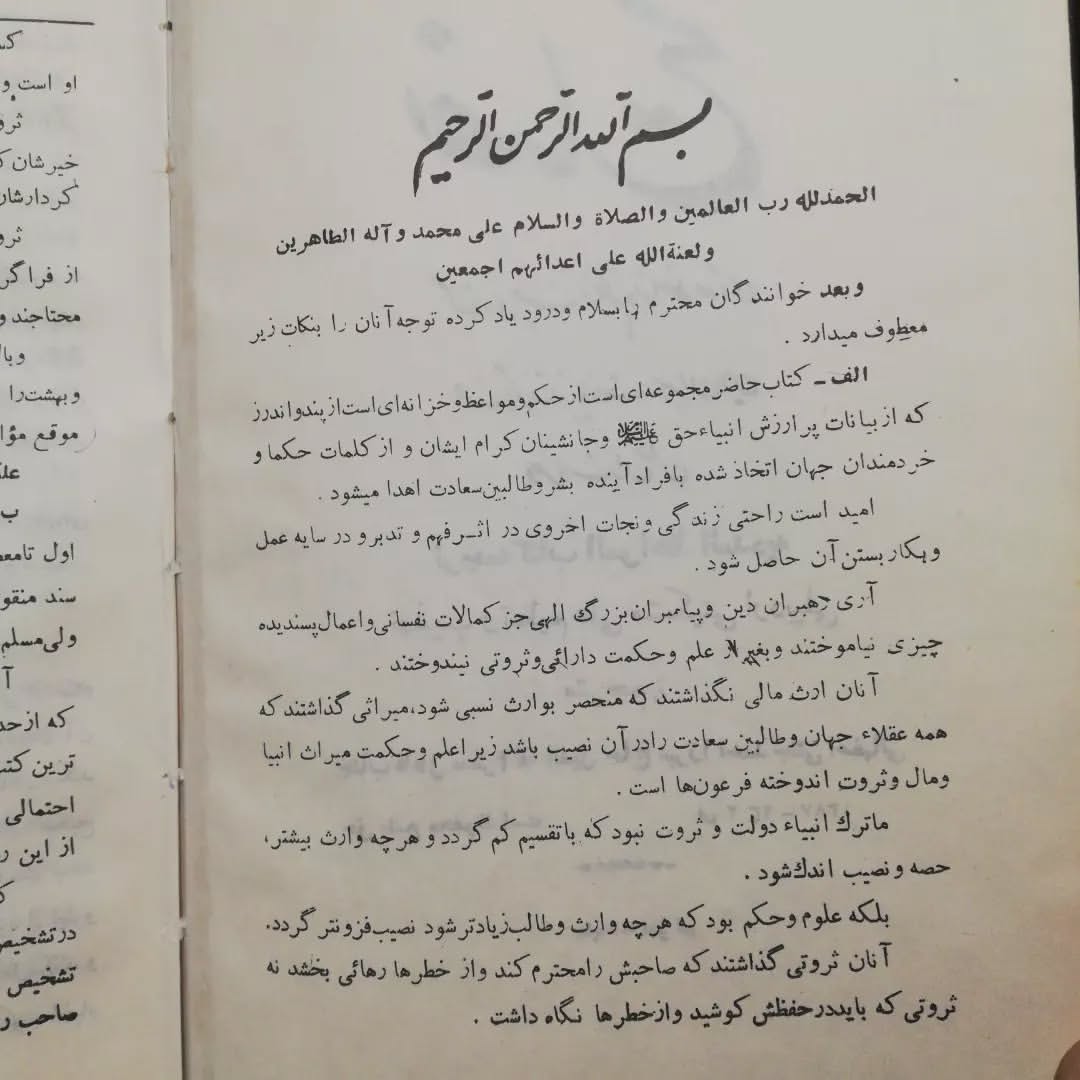 بسم الله الرحمن الرحیم
الحمدلله رب العالمین والصلاة والسلام علی محمد وآله الطاهرین
ولعنةالله علی اعدائهم اجمعین
وبعد خوانندگان محترم رابسلام ودرود یادکرده توجه آنان را بنکات زیر
معطوف میدارد .
الف ـ کتاب حاضر مجموعه‌ای است از حکم ومواعظ وخزانه‌ای است از پند واندرز
که از بیانات پرارزش انبیاء حق علیهم‌السلام وجانشینان کرام ایشان و از کلمات حکما و
خردمندان جهان اتخاذ شده بافراد آینده بشر وطالبین سعادت اهدا میشود .
امید است راحتی زندگی ونجات اخروی در اثر فهم و تدبر و در سایه عمل
وبکار بستن آن حاصل شود .
آری رهبران دین وپیامبران بزرگ الهی جز کمالات نفسانی واعمال پسندیده
چیزی نیاموختند وبغیر از علم وحکمت دارائی وثروتی نیندوختند .
آنان ارث مالی نگذاشتند که منحصر بوارث نسبی شود، میراثی گذاشتند که
همه عقلاء جهان وطالبین سعادت رادرآن نصیب باشد زیرا علم وحکمت میراث انبیا
ومال وثروت اندوخته فرعون‌ها است .
ماترك انبیاء دولت و ثروت نبود که باتقسیم کم گردد و هرچه وارث بیشتر،
حصه ونصیب اندك شود .
بلکه علوم وحکم بود که هرچه وارث وطالب زیادتر شود نصیب فزونتر گردد.
آنان ثروتی گذاشتند که صاحبش رامحترم کند واز خطرها رهائی بخشد نه
ثروتی که بایددرحفظش کوشید وازخطرها نگاه داشت .
او است و
خیرشان
کردارشان
از فراگر
محتاجند و
وبهشت را
موقع مؤا
ب
اول تامعص
سند منقو
ولی مسلم
آ
که ازحد
ترین کتب
احتمالی
از این ر
درتشخیص
تشخیص
صاحب ر